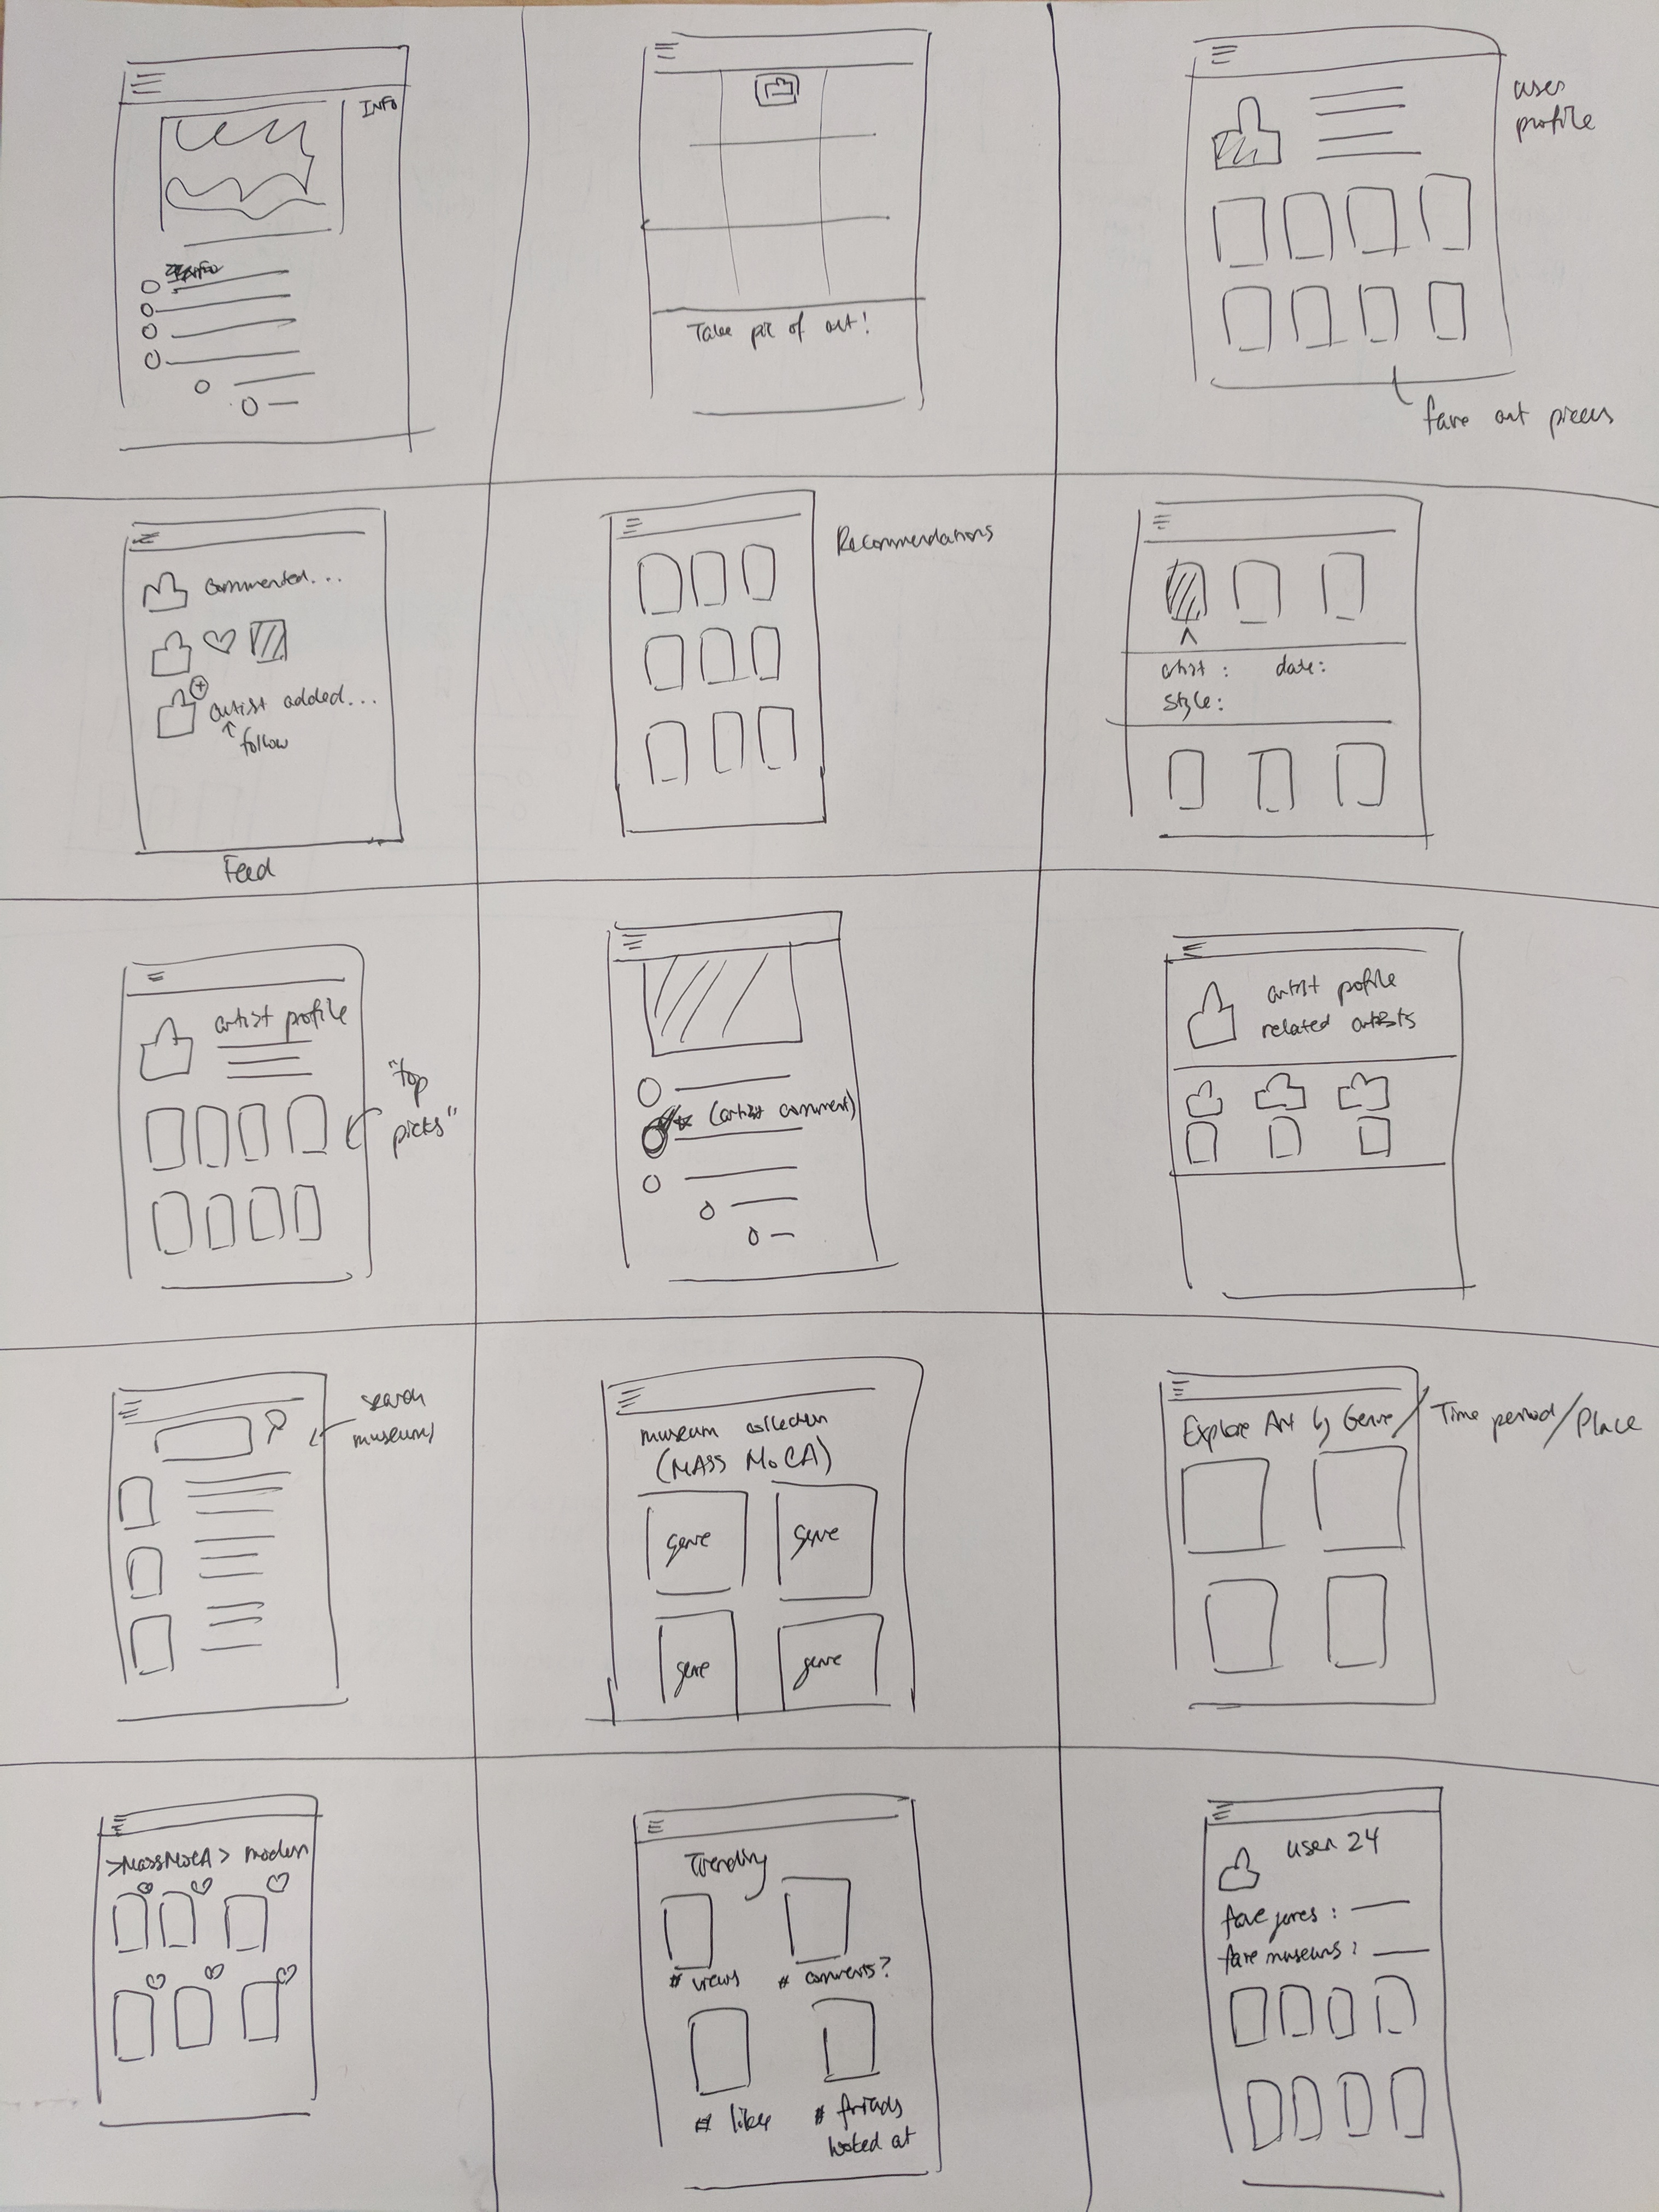 INFO
Take pic of art!
user
profile
fave art pieces
commented...
artist added...
follow
Feed
Recommendations
artist :
date:
style:
artist profile
"top
picks"
(artist comment)
artist profile
related artists
search
museums
museum collection
(MASS MoCA)
genre
genre
genre
genre
Explore Art by Genre/Time period/Place
>MassMoCA> modern
Trending
# views
# comments?
# likes
# friends
looked at
user 24
fave genres :
fave museums :